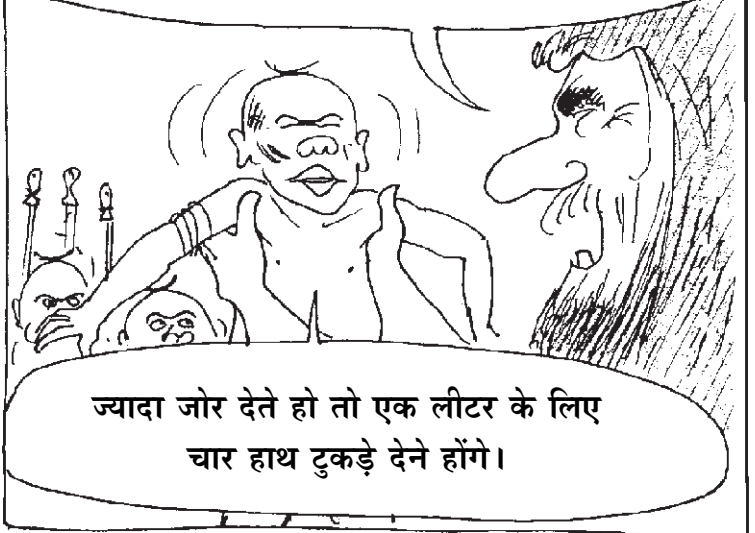 ज्यादा जोर देते हो तो एक लीटर के लिए
चार हाथ टुकड़े देने होंगे।